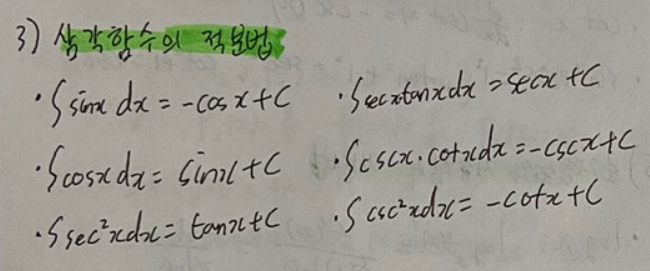 3) 삼각함수의 적분법
· ∫sinx dx = -cosx+C
· ∫secxtanxdx = secx+C
· ∫cosxdx = sinx+C
· ∫cscx·cotxdx = -cscx+C
· ∫sec²xdx = tanx+C
· ∫csc²xdx = -cotx+C